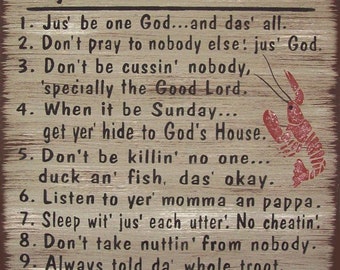 1. Jus' be one God...and das' all.
2. Don't pray to nobody else! jus' God.
3. Don't be cussin' nobody,
'specially the Good Lord.
4. When it be Sunday...
get yer' hide to God's House.
5. Don't be killin' no one...
duck an' fish, das' okay.
6. Listen to yer' momma an pappa.
7. Sleep wit' jus' each utter'. No cheatin'.
8. Don't take nuttin' from nobody.
9. Always told da' whole troot.